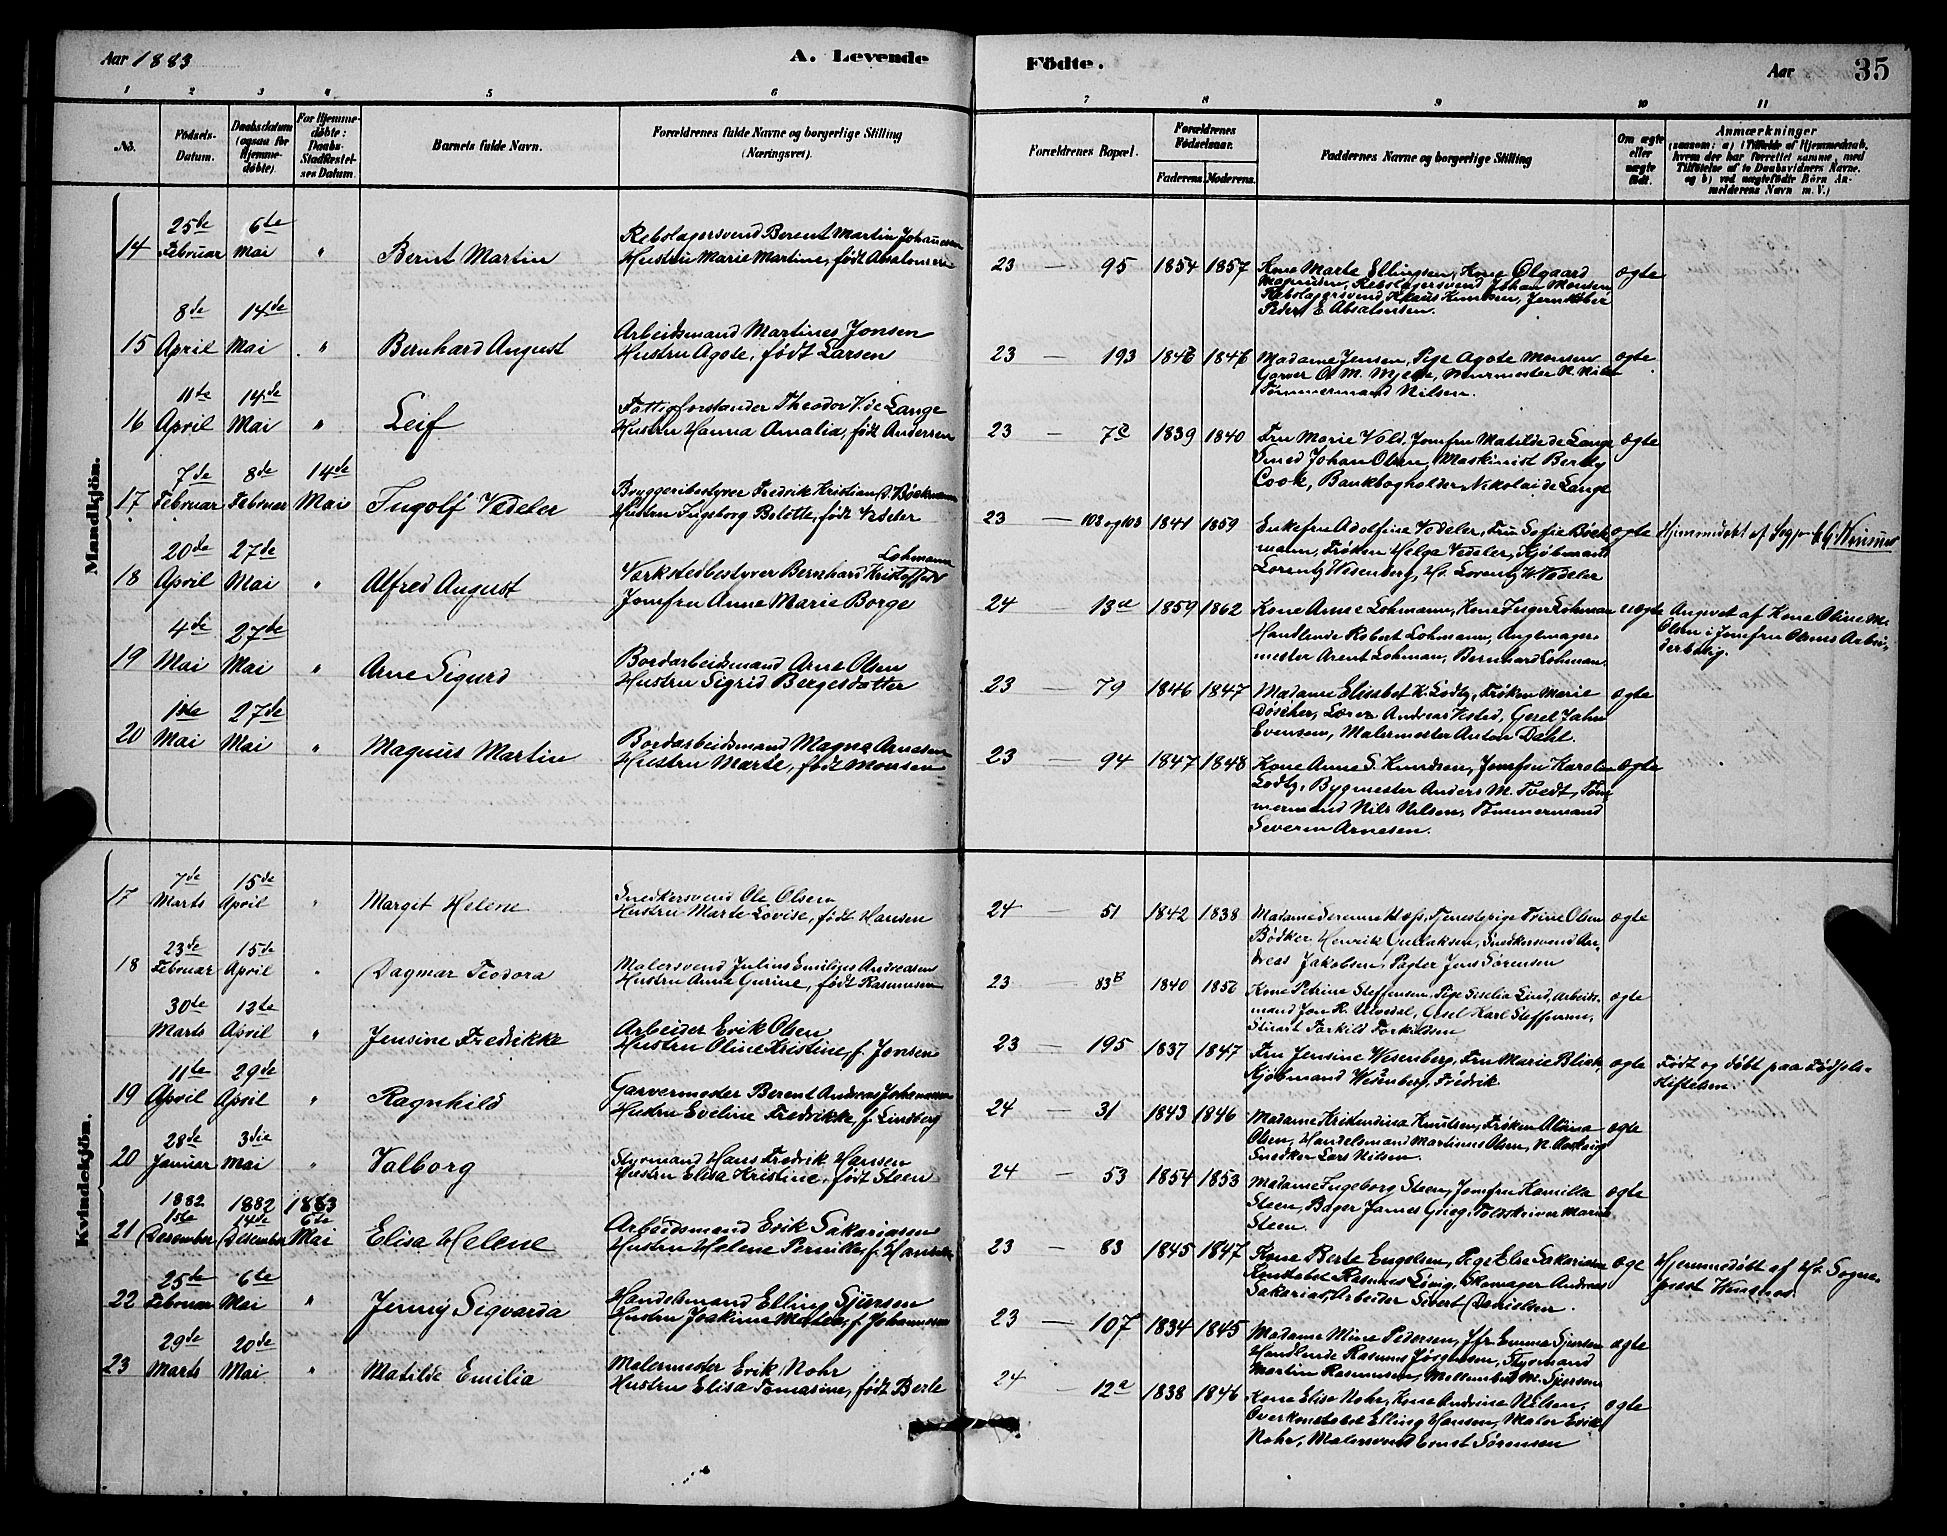 Aar 1883
A. Levende Födte.
Aar 35
1 2 3 4 5 6 7 8 9 10 11
No. Födsels-Datum. Daabsdatum (ogsaa for Hjemme-döbte). For Hjemme-döbte: Daabs-Stadfæstel-ses Datum. Barnets fulde Navn. Forældrenes fulde Navne og borgerlige Stilling (Næringsvei). Forældrenes Bopæl. Forældrenes Fødselsaar. Faderens. Moderens. Faddernes Navne og borgerlige Stilling Om ægte eller uægte födt. Anmærkninger (saasom: a) i Tilfælde af Hjemmedaab, hvem der har forrettet samme, med Tilföielse af to Daabsvidners Navne, og b) ved uægtefödte Börn Anmelderens Navn m. V.)
Mandkjön.
14 25de Februar 6te Mai " Bernt Martin
Rebslagersvend Berent Martin Johannesen
Hustru Marie Martine, født Absalonsen
23 — 95 1854 1857
Kone Marte Ellingsen, Kone Olgaard
Magnusen, Rebslagersvend Johan Monsen
Rebslagersvend Klaus Knudsen, Jernstøber
Peder E Absalonsen.
ægte
15 8de April 14de Mai " Bernhard August
Arbeidsmand Martines Jonsen
Hustru Agote, født Larsen
23 — 193 1846 1846
Madame Jensen, Pige Agote Monsen
Garver O. M. Mjelde, Murmester N. Nilsen
Tømmermand Nilsen.
ægte
16 11te April 14de Mai " Leif
Fattigforstander Theodor V. de Lange
Hustru Hanna Amalia, født Andersen
23 — 7c 1839 1840
Fru Marie Vold, Jomfru Matilde de Lange
Smed Johan Olsen, Maskinist Berthy
Cook, Bankbogholder Nikolai de Lange
ægte
17 7de Februar 8de Februar 14de Mai Ingolf Vedeler
Bryggeribestyrer Fredrik Kristian D. Böckmann
Hustru Ingeborg Belotte, født Vedeler
23 — 102 og 103 1841 1859
Enkefru Adolfine Vedeler, Fru Sofie Böck-
mann, Frøken Helga Vedeler, Kjöbmand
Lorentz Wesenberg, Hr. Lorentz W. Vedeler
ægte
Hjemmedøbt af Sogpr.
18 20de April 27de Mai " Alfred August
Værkstedbestyrer Bernhard Kristoffer Lohmann
Jomfru Anne Marie Borge
24 13d 1859 1862
Kone Anne Lohmann, Kone Inger Lohman
Handlende Robert Lohmann, Anglemager-
mester Arent Lohman, Bernhard Lohman.
uægte
Angivet af Kone Oline M.
Olsen i Jomfru Olsens Arbei-
derbolig.
19 4de Mai 27de Mai " Arne Sigurd
Bordarbeidsmand Arne Olsen
Hustru Sigrid Bergesdatter
23 — 79 1846 1847
Madame Elisabet K. Lodtz, Frøken Marie
Döscher, Lærer Andreas Vested, Gesel Jahn
Evensen, Malermester Anton Dahl.
ægte
20 1ste Mai 27de Mai " Magnus Martin
Bordarbeidsmand Magne Arnesen
Hustru Marte, født Monsen
23 — 94 1847 1848
Kone Anne S. Knudsen, Jomfru Karoline
Lodtz, Bygmester Anders M. Tvedt, Tøm-
mermand Nils Nilsen, Tømmermand
Severin Arnesen.
ægte
Kvindekjön.
17 7de Marts 15de April " Margit Helene
Snedkersvend Ole Olsen
Hustru Marte Lovise, født Hansen
24 — 51 1842 1838
Madame Serenne Næss, Tjenestepige Trine Olsen
Bødker Henrik Gullaksen, Snedkersvend An-
dreas Jakobsen, Pagter Jens Sørensen
ægte
18 23de Februar 15de April " Dagmar Teodora
Malersvend Julius Emilius Andreasen
Hustru Anne Gurine, født Rasmussen
23 — 83B 1840 1850
Kone Petrine Steffensen, Pige Siselia Lind, Arbeids-
mand Jon R. Ulvedal, Gesel Karl Steffensen,
Stuart Torkild Torkildsen
ægte
30te Marts 12te April " Jensine Fredrikke
Arbeider Erik Olsen
Hustru Oline Kristine, f. Jonsen
23 — 195 1837 1847
Fru Jensine Wesenberg, Fru Marie Blick,
Kjöbmand Wesenberg, Fredrik
ægte
Født og døbt paa Fødsels-
stiftelsen.
19 11te April 29de April " Ragnhild
Garvermester Berent Andreas Johannesen
Hustru Eveline Fredrikke, f. Lindberg
24 — 31 1843 1846
Madame Kristensina Knutsen, Frøken Alvina
Olsen, Handelsmand Martinus Olsen,
Snedker Lars Nilsen.
ægte
20 28de Januar 3die Mai " Valborg
Styrmand Hans Fredrik Hansen
Hustru Elisa Kristine, født Steen
24 — 53 1854 1853
Madame Ingeborg Steen, Jomfru Kamilla
Steen, Bager James Grieg, Toldskriver Marius
Steen.
ægte
21 1882 1ste Desember 1882 14de Desember 1883 6te Mai Elisa Helene
Arbeidsmand Erik Sakariasen
Hustru Helene Pernille, f. Hansen
23 — 83 1845 1847
Kone Berte Engelsen, Pige Else Sakariasen
Konstabel Rasmus Lövig, Skomager Andreas
Sakarias, Arbeider Sivert Danielsen.
ægte
Hjemmedöbt af Hr. Sogne-
præst Wensnes.
22 25te Februar 6te Mai " Jenny Sigvarda
Handelsmand Elling Sjursen
Hustru Joakime Matea, f. Johannesen
23 — 107 1834 1845
Madame Mine Pedersen, Jfr Emma Sjursen
Handlende Rasmus Jørgensen, Styrmand
Martin Rasmussen, M. Sjursen
ægte
23 29de Marts 20de Mai " Matilde Emilia
Malermester Erik Nohr
Hustru Elisa Tomasine, født Berle
24 — 12a 1838 1846
Kone Elise Nohr, Kone Andrine Nilsen,
Overkonstabel Elling Hansen, Maler Erik
Nohr, Malersvend Ernst Sørensen
ægte